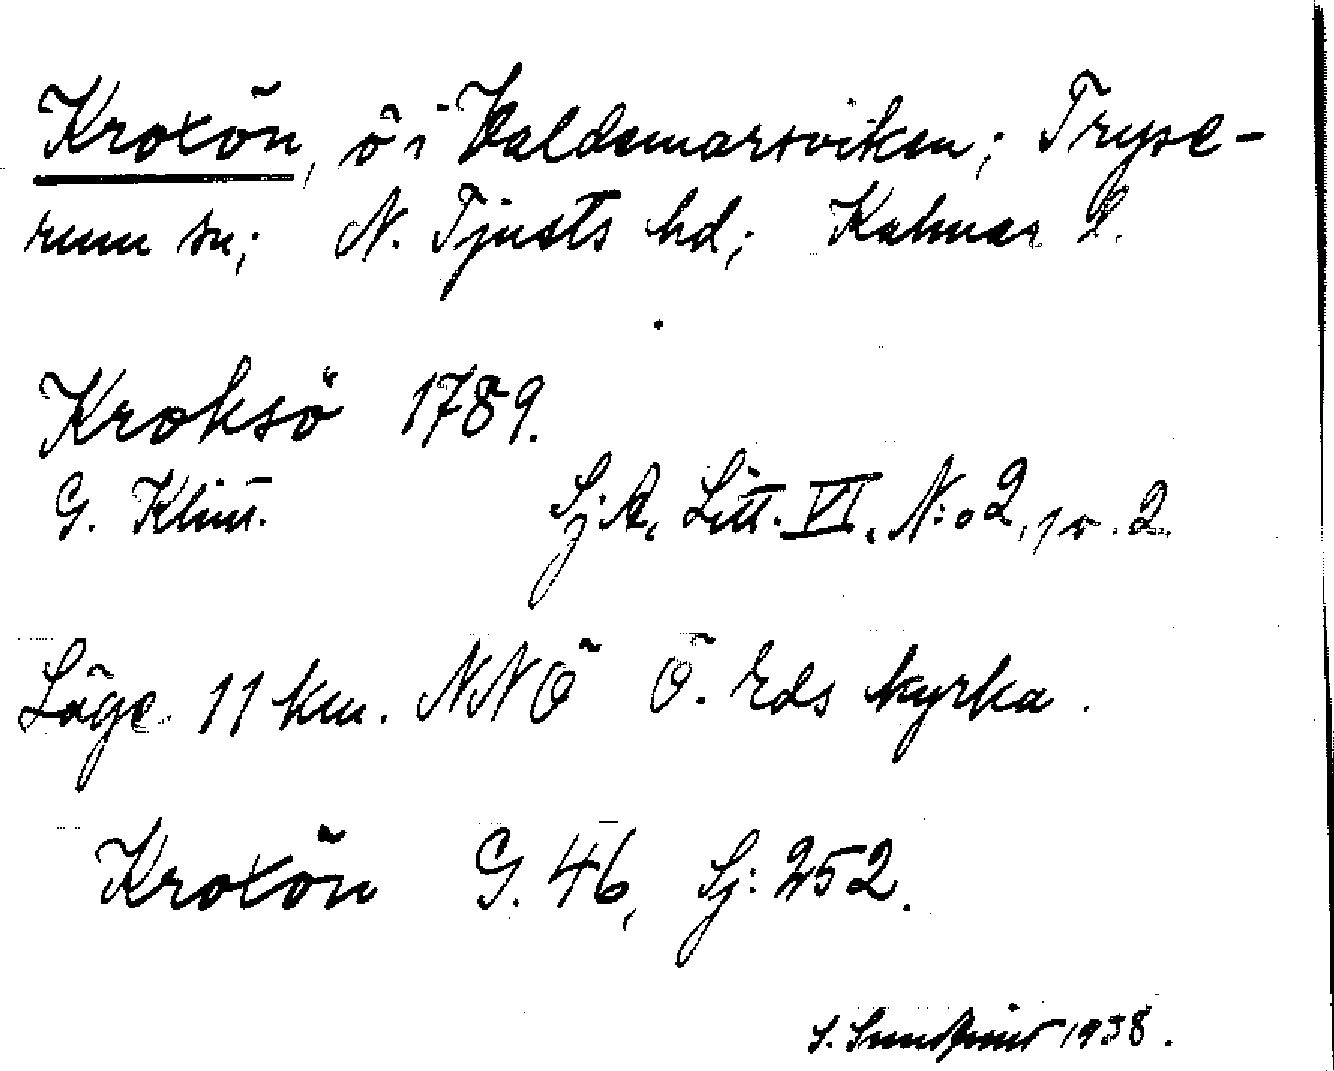 Kroxön, ö i Valdemarsviken; Tryse-
rum sn; N. Tjusts hd; Kalmar l.
Kroksö 1789.
G. Klint. Sj.A. Litt. VI. N:o 2, pr. 2.
Läge 11 km. NNÖ Ö. Eds kyrka.
Kroxön G. 46, Sj: 252.
S. Sundkvist 1938.